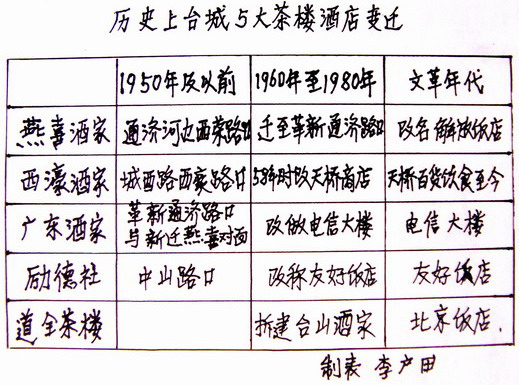 历史上台城5大茶楼酒店变迁
1950年及以前 1960年至1980年 文革年代
燕喜酒家 通济河边西荣路口 迁至革新通济路口 改名解放饭店
西濠酒家 城西路西豪路口 58年时改天桥商店 天桥百货饮食至今
广东酒家 革新通济路口 改做电信大楼 电信大楼
与新迁燕喜对面
励德社 中山路口 改称友好饭店 友好饭店
道全茶楼 拆建台山酒家 北京饭店.
制表 李产田